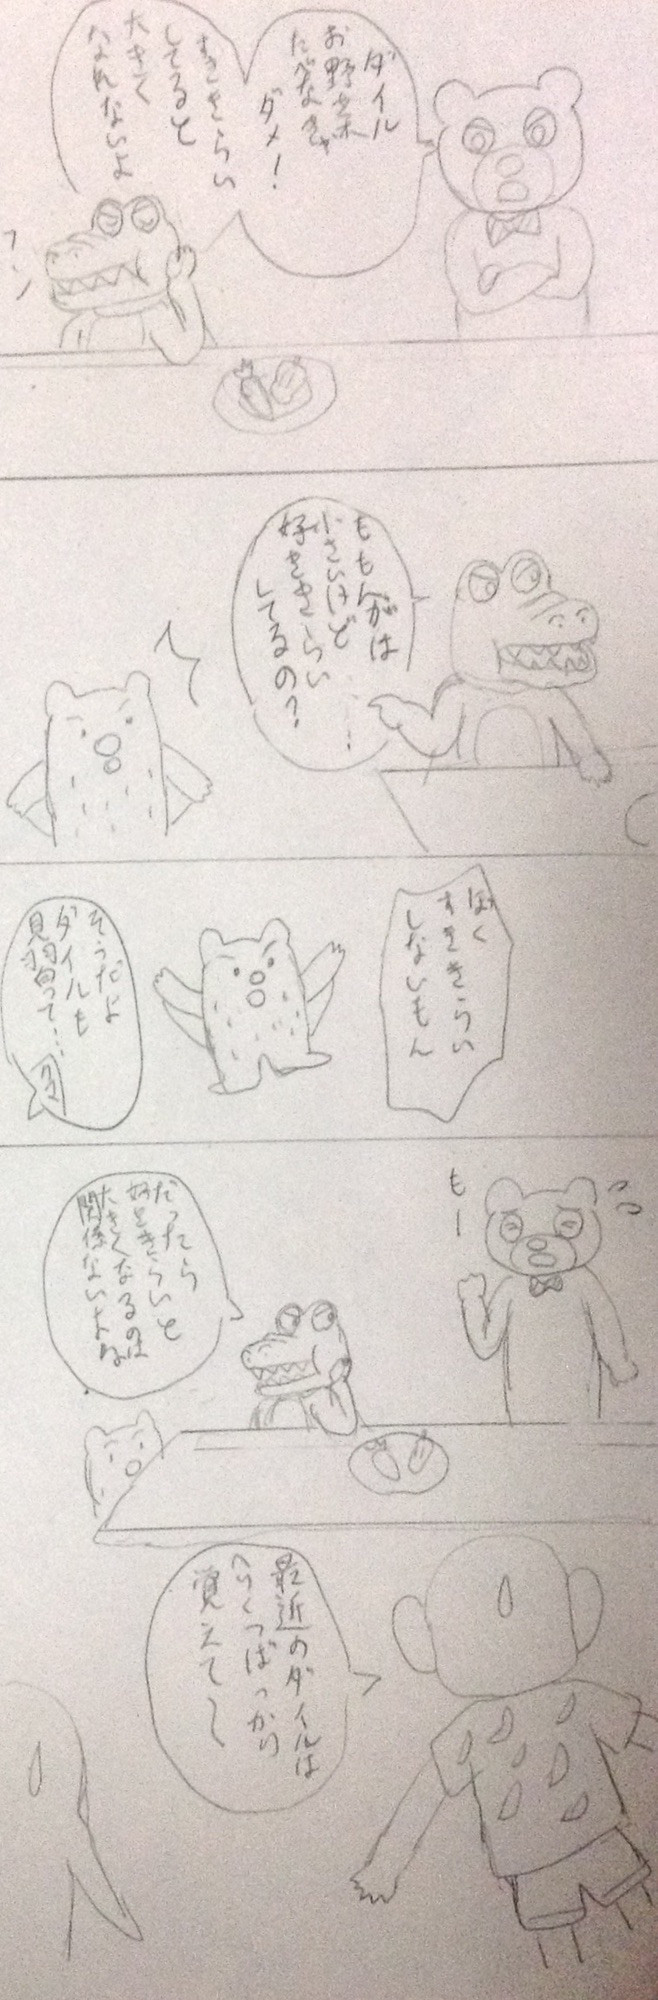 ダイル
お野菜
たべなきゃ
ダメ！
すききらい
してると
大きく
なれないよ
フーン
ももんがは
小さいけど
好ききらい
してるの？
ぼく
すききらい
しないもん
そうだよ
ダイルも
見習って…
もー
だったら
好ききらいと
大きくなるのは
関係ないよね
最近のダイルは
へりくつばっかり
覚えて〜